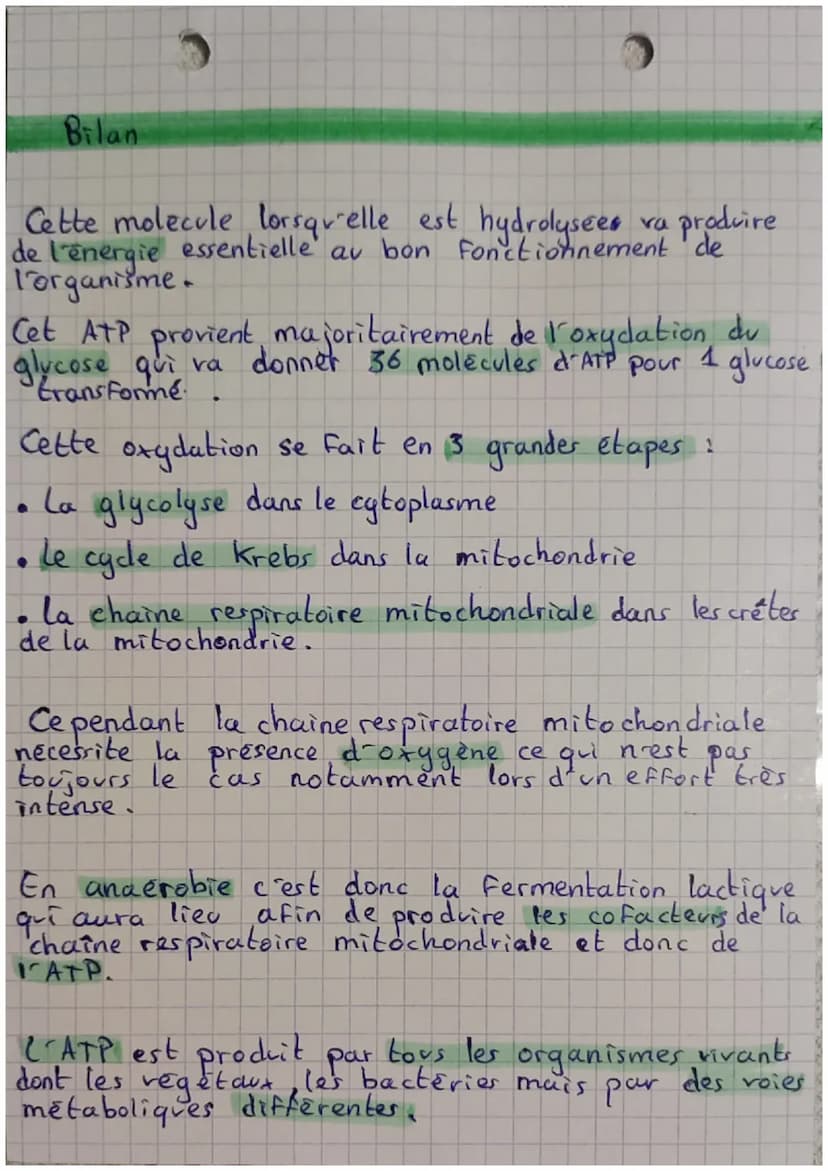 Bilan
Cette molécule lorsqu'elle est hydrolysées va produire
de l'énergie essentielle au bon fonctionnement de
l'organisme.
Cet ATP provient majoritairement de l'oxydation du
glucose qui va donner 36 molécules d'ATP pour 1 glucose
transformé.
Cette oxydation se fait en 3 grandes étapes :
• La glycolyse dans le cytoplasme
• le cycle de Krebs dans la mitochondrie
• la chaîne respiratoire mitochondriale dans les crêtes
de la mitochondrie.
Cependant la chaîne respiratoire mitochondriale
nécessite la présence d'oxygène ce qui n'est pas
toujours le cas notamment lors d'un effort très
intense.
En anaérobie c'est donc la fermentation lactique
qui aura lieu afin de produire les cofacteurs de la
chaîne respiratoire mitochondriale et donc de
l'ATP.
L'ATP est produit par tous les organismes vivants
dont les végétaux, les bactéries mais par des voies
métaboliques différentes.